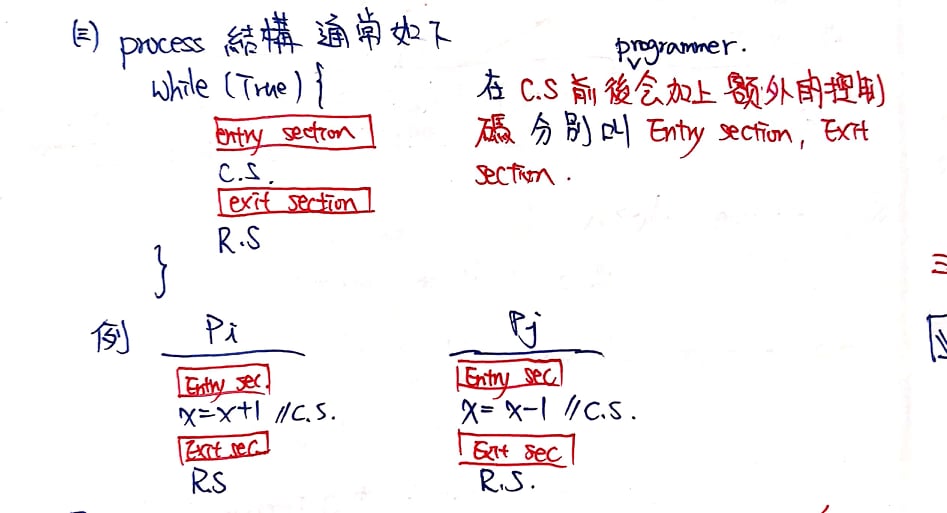 (三) process 結構 通常如下
while (True) {
entry section
C.S.
exit section
R.S
}
programmer.
在 C.S 前後会加上 額外的控制
碼 分別叫 Entry section, Exit
section.
例 Pi Pj
Entry sec. Entry sec
x=x+1 //C.S. x= x-1 //C.S.
Exit sec. Exit sec
R.S R.S.